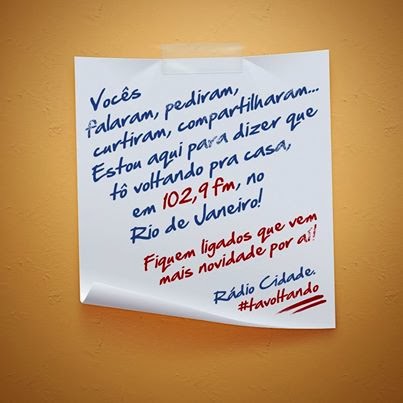 Vocês
falaram, pediram,
curtiram, compartilharam...
Estou aqui para dizer que
tô voltando pra casa,
em 102,9 fm, no
Rio de Janeiro!
Fiquem ligados que vem
mais novidade por aí!
Rádio Cidade.
#tavoltando